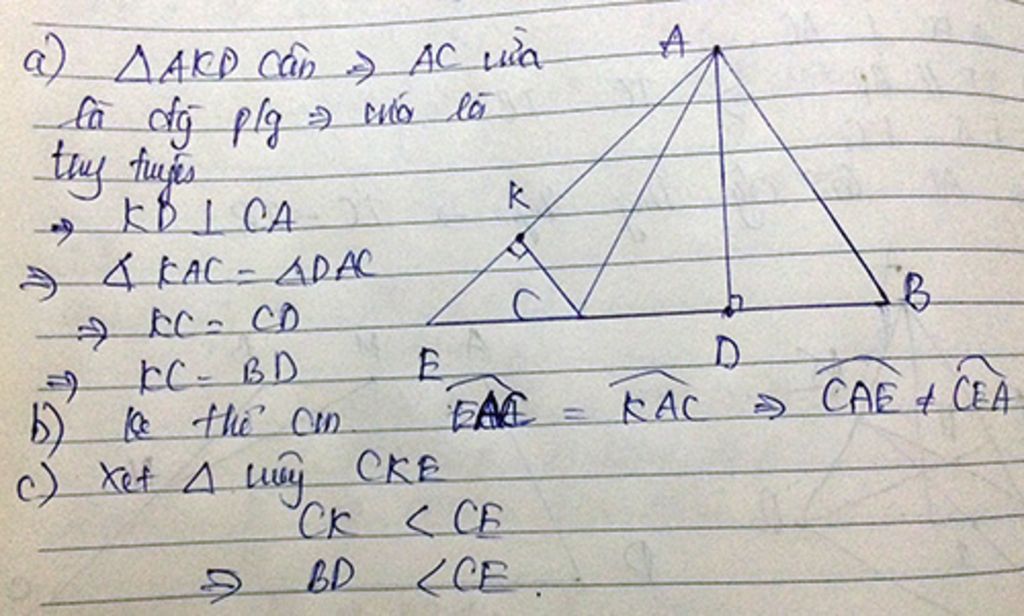 a) △AKD cân => AC vừa
là đg p/g => vừa là
trug tuyến
=> KD ⊥ CA
=> △ KAC = △DAC
=> KC = CD
=> KC = BD
b) thể cm KAC => CAE ≠ CEA
c) Xét △ vuôg CKE
CK < CE
=> BD < CE.
A
K
C
B
E
D